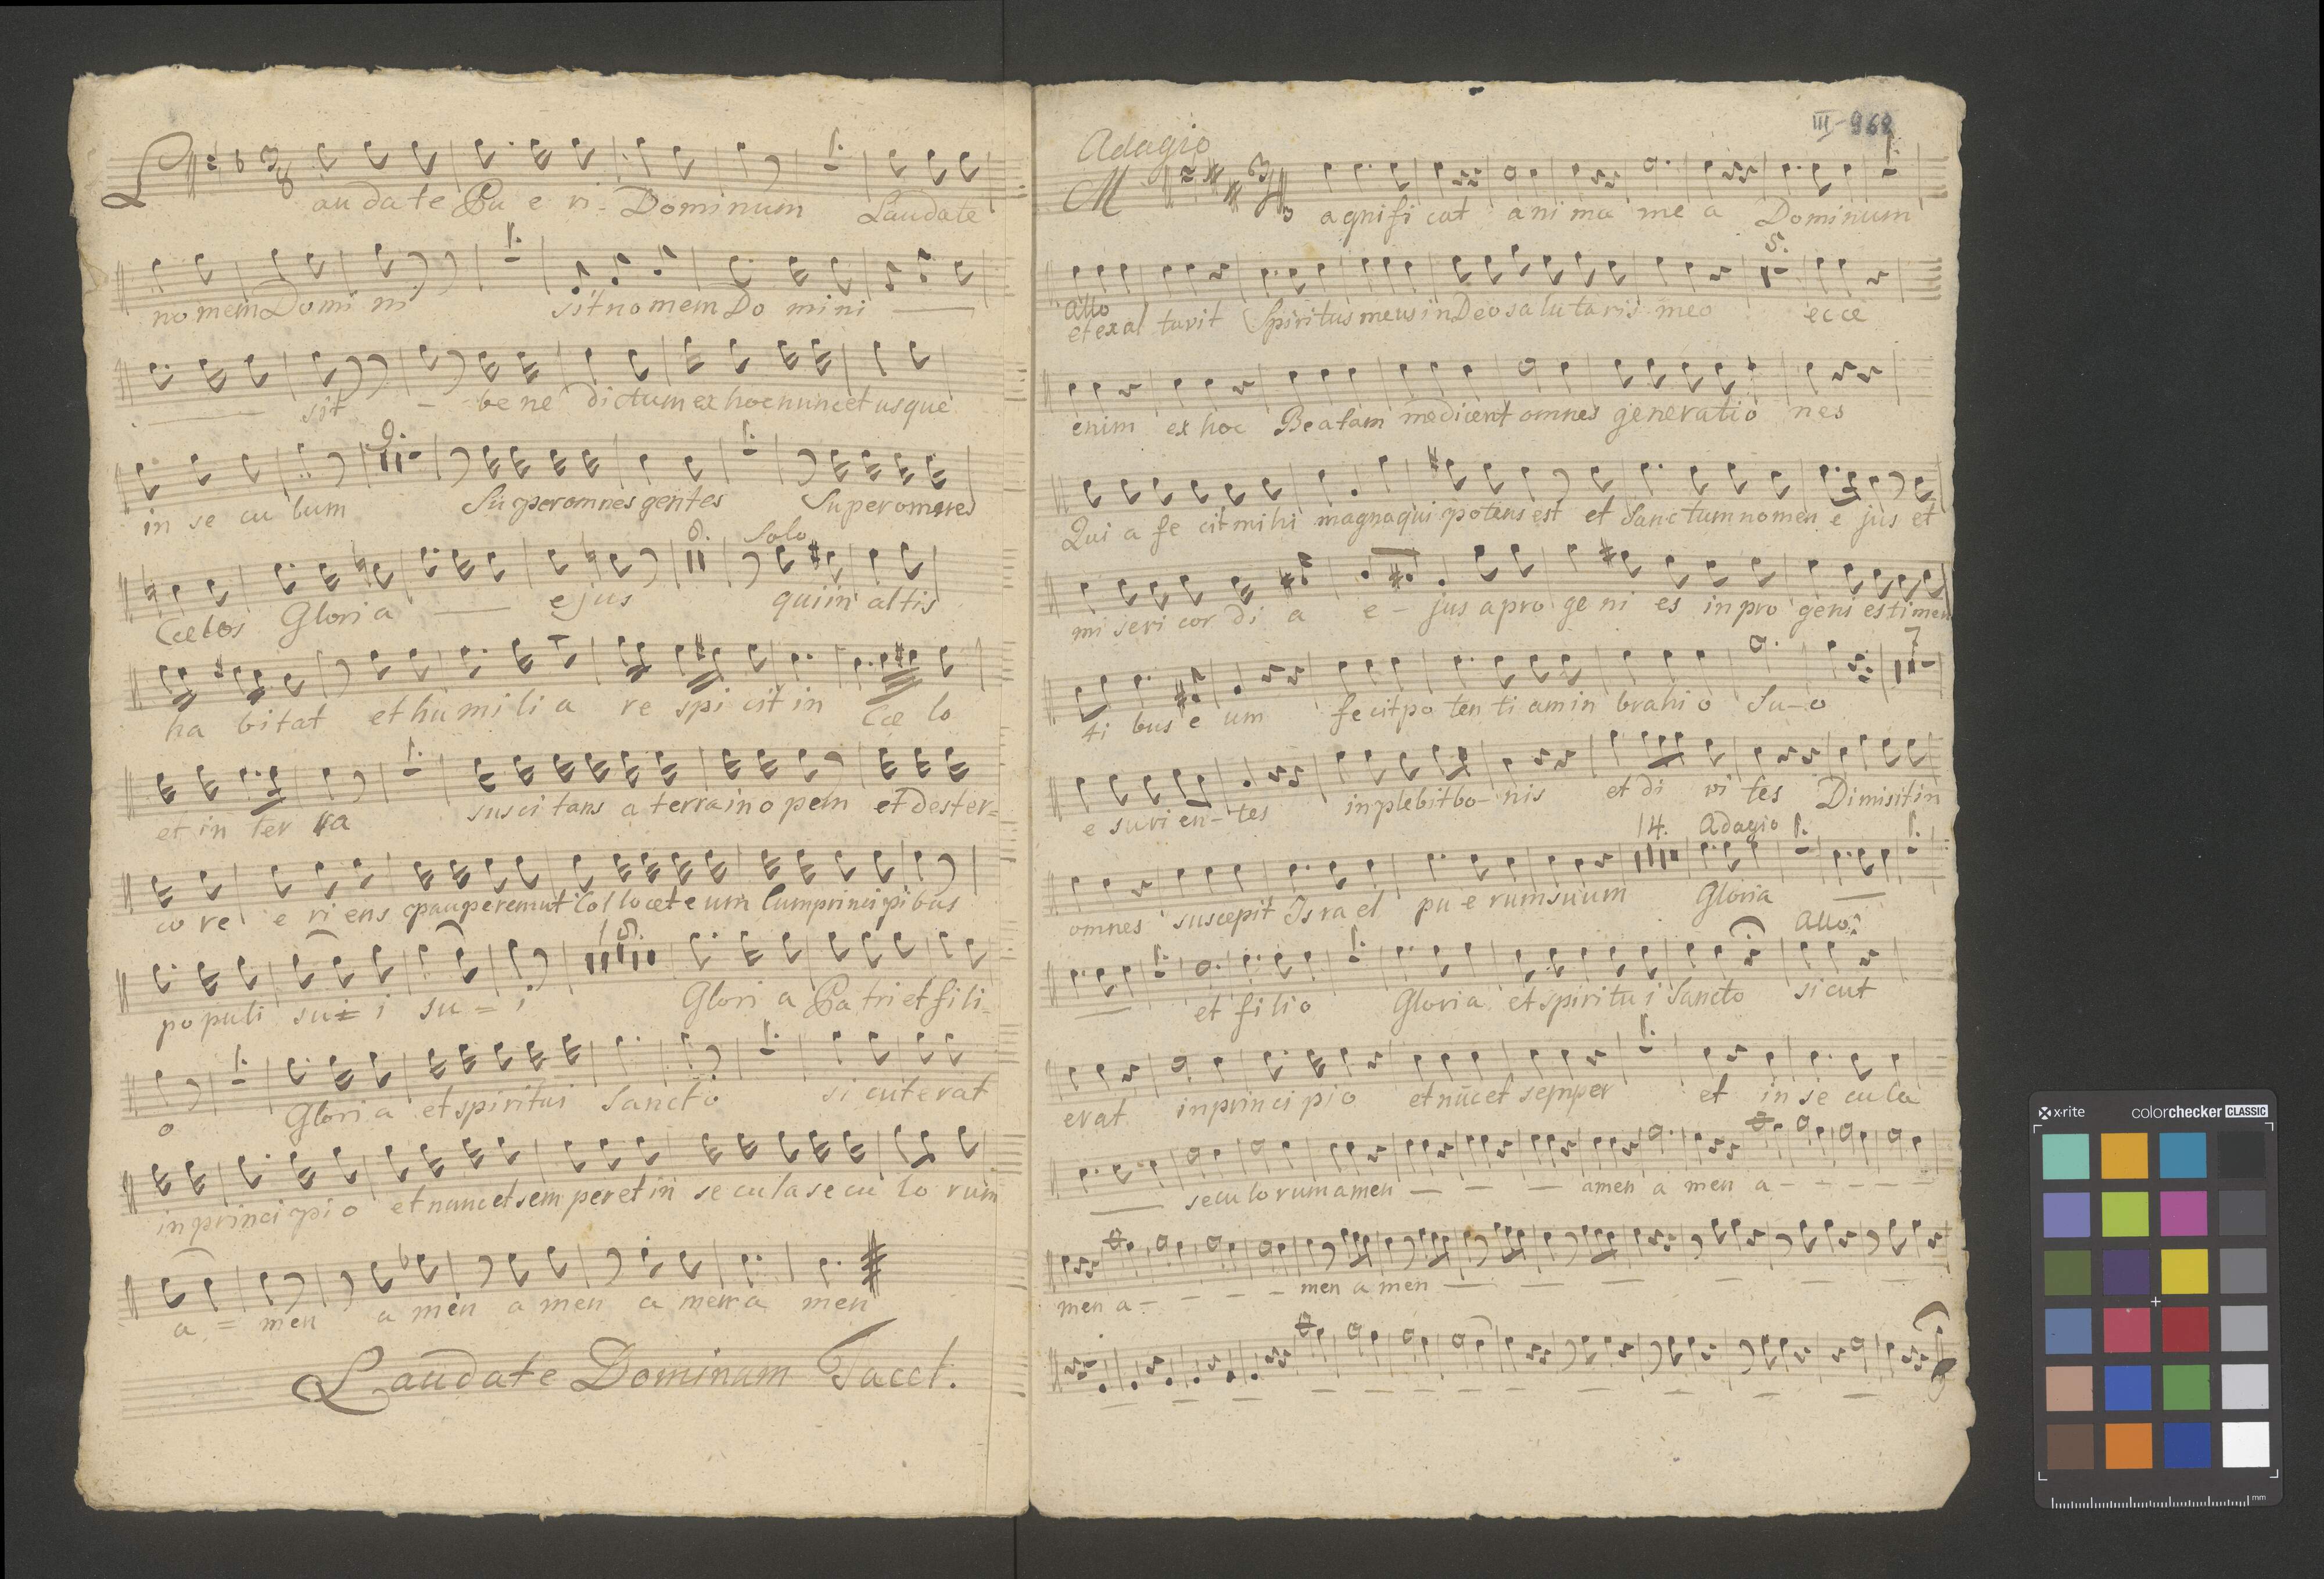 Laudate Pu e ri Dominum Laudate
nomem Domi ni 1. sit nomem Do mini
sit be ne dictum ex hoc nunc et usque
in se cu lum 9. Super omnes gentes 1. Super omnes
8. Solo
Cælos Gloria ejus qui in altis
ha bitat et hu mi li a re spi cit in Cæ lo
et in ter ra 1. susci tans a terra in o pem et de ster=
co re e ri ens pauperem ut Col locet e um Cum principi bus
populi su = i su = i 18. Glori a Patri et fi li=
o 1. Gloria et spiritui Sancto 1. si cut erat
in princi pi o et nunc et sem per et in se cula se cu lo rum
a = men a men a men a men a men
Laudate Dominum Tacet.
III-968
Adagio
Magnifi cat anima me a Dominum 1.
Allo 5.
et exal tavit Spiritus meus in Deo salutaris meo ecce
enim ex hoc Beatam me dicent omnes generatio nes
Qui a fe cit mihi magna qui potens est et Sanctum nomen e jus et
mi seri cor di a e - jus a pro ge ni es in pro geni es timen
ti bus e um fecit po ten ti am in brahi o Su - o 7
e suri en - tes inplebit bo - nis et di vi tes Dimisit in
14. Adagio 1. 1.
omnes suscepit Israel pu e rum suum Gloria
Allo
1. et filio 1. Gloria et spiritu i Sancto sicut
erat in princi pio et nūc et semper 1. et in se cula
seculorum amen — — — amen a men a - - - - -
men a - - - - men amen — — — — — —